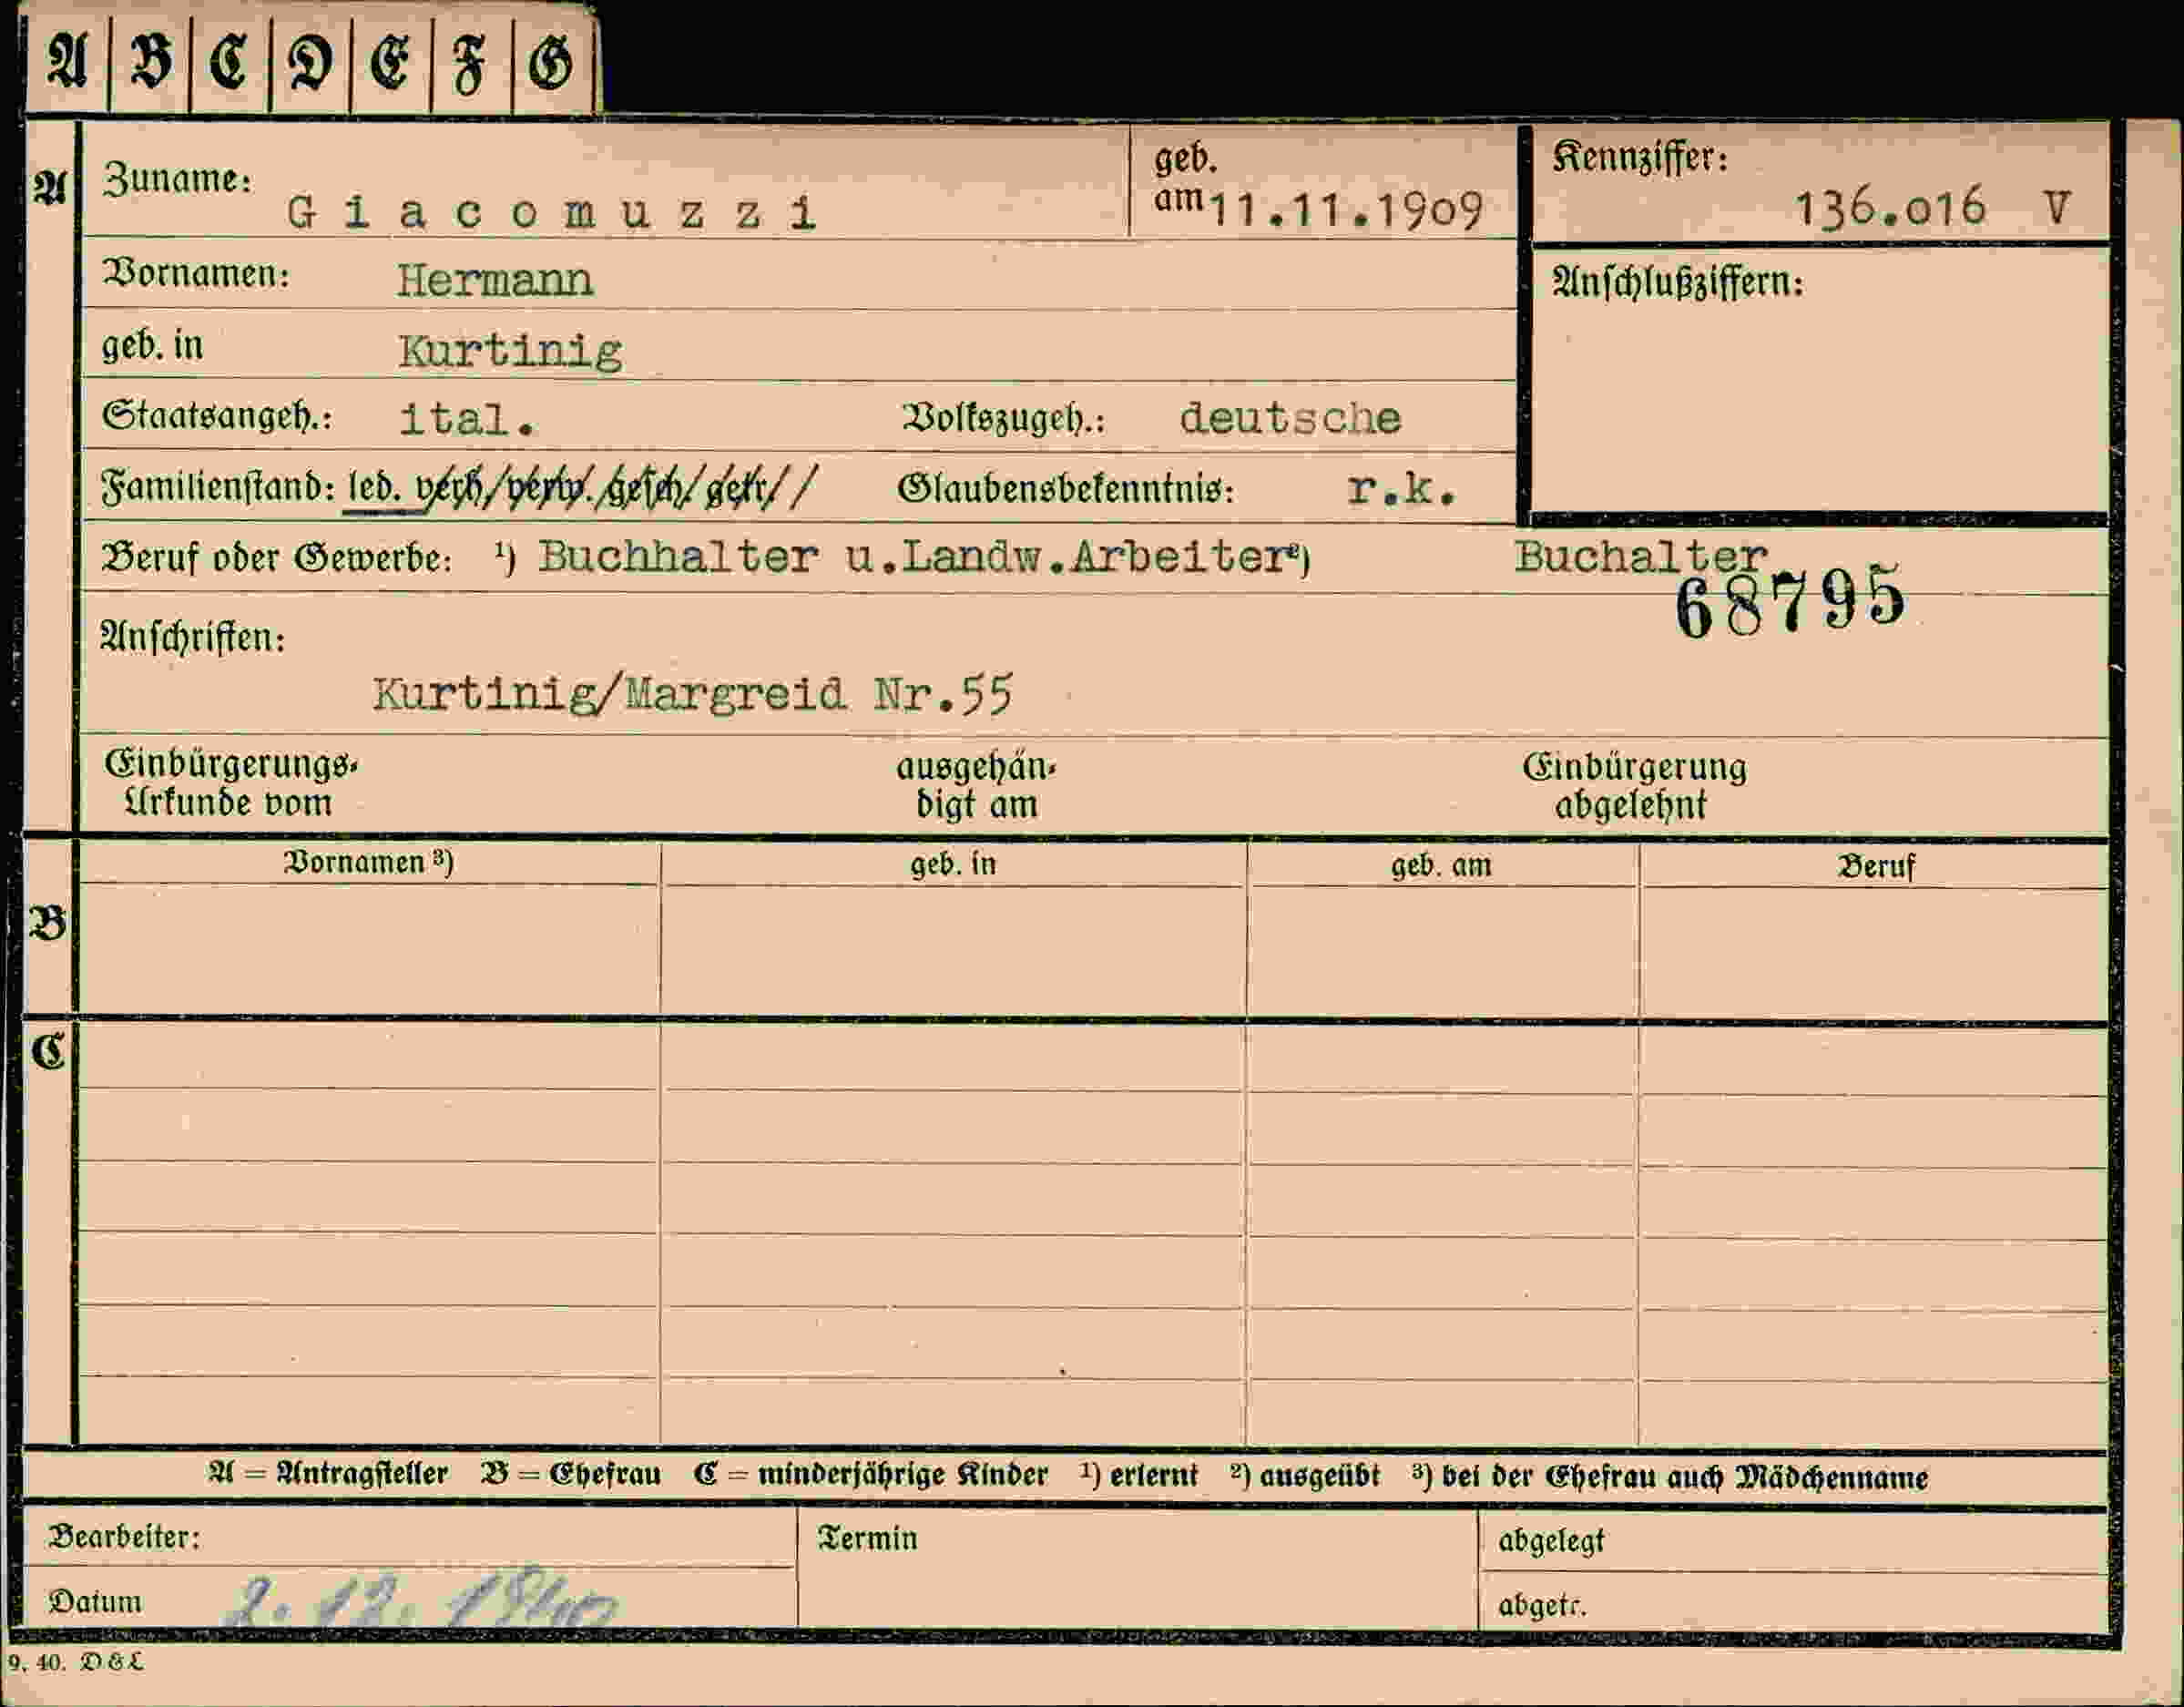 A B C D E F G
A
Zuname: Giacomuzzi
geb. am 11.11.1909
Kennziffer: 136.016 V
Vornamen: Hermann
Anschlußziffern:
geb. in Kurtinig
Staatsangeh.: ital. Volkszugeh.: deutsche
Familienstand: led. verh/verw./gesch/getr// Glaubensbekenntnis: r.k.
Beruf oder Gewerbe: ¹) Buchhalter u.Landw.Arbeiter ²) Buchalter
68795
Anschriften:
Kurtinig/Margreid Nr.55
Einbürgerungs-Urkunde vom ausgehändigt am Einbürgerung abgelehnt
Vornamen ³) geb. in geb. am Beruf
B
C
A = Antragsteller B = Ehefrau C = minderjährige Kinder ¹) erlernt ²) ausgeübt ³) bei der Ehefrau auch Mädchenname
Bearbeiter: Termin abgelegt
Datum 2.12.1940 abgetr.
9. 40. D&L